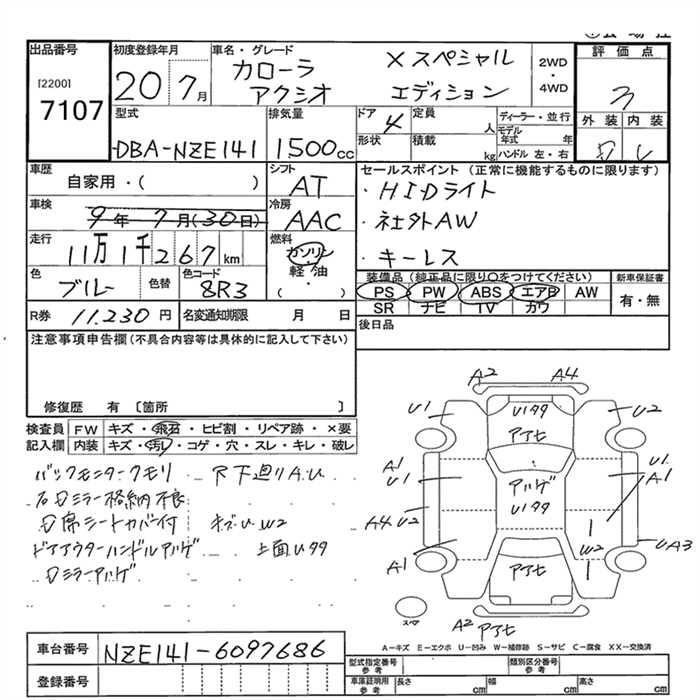 出品番号
[2200]
7107
初度登録年月
20 7月
車名・グレード
カローラ Xスペシャル
アクシオ エディション
2WD
・
4WD
評価点
3
外装 内装
型式
DBA-NZE141
排気量
1500cc
ドア 4
定員 人
形状
積載 kg
ディーラー・並行
モデル年式 年
ハンドル 左・右
車歴
自家用・( )
シフト
AT
車検
9年7月(30日)
冷房
AAC
走行
11万1千267km
燃料
ガソリン
・軽油・
( )
色
ブルー
色替
色コード
8R3
R券 11.230円
名変通知期限 月 日
セールスポイント (正常に機能するものに限ります)
・HIDライト
・社外AW
・キーレス
装備品 (純正品に限り○をつけてください)
PS PW ABS エアB AW
SR ナビ TV カワ
新車保証書
有・無
後日品
注意事項申告欄(不具合内容等は具体的に記入して下さい)
修復歴 有 〔箇所 〕
検査員記入欄
FW キズ・飛石・ヒビ割・リペア跡・×要
内装 キズ・汚レ・コゲ・穴・スレ・キレ・破レ
バックモニタークモリ
下廻りA.U
右Dミラー格納不良
D席シートカバー付
キズU W2
ドアアウターハンドルハゲ
上面Uタタ
Dミラーハゲ
A2 A4
U1 Uタタ U2
アアセ
A1
U1
ハゲ
Uタタ
U1
A1
A4 U2
W2
UA3
A1
アアセ
スペア
A2 アアセ
A-キズ E-エクボ U-凹み W-補修跡 S-サビ C-腐食 XX-交換済
車台番号 NZE141-6097686
登録番号
型式指定番号 参考
類別区分番号 参考
車庫証明用 参考 長さ cm 幅 cm 高さ cm